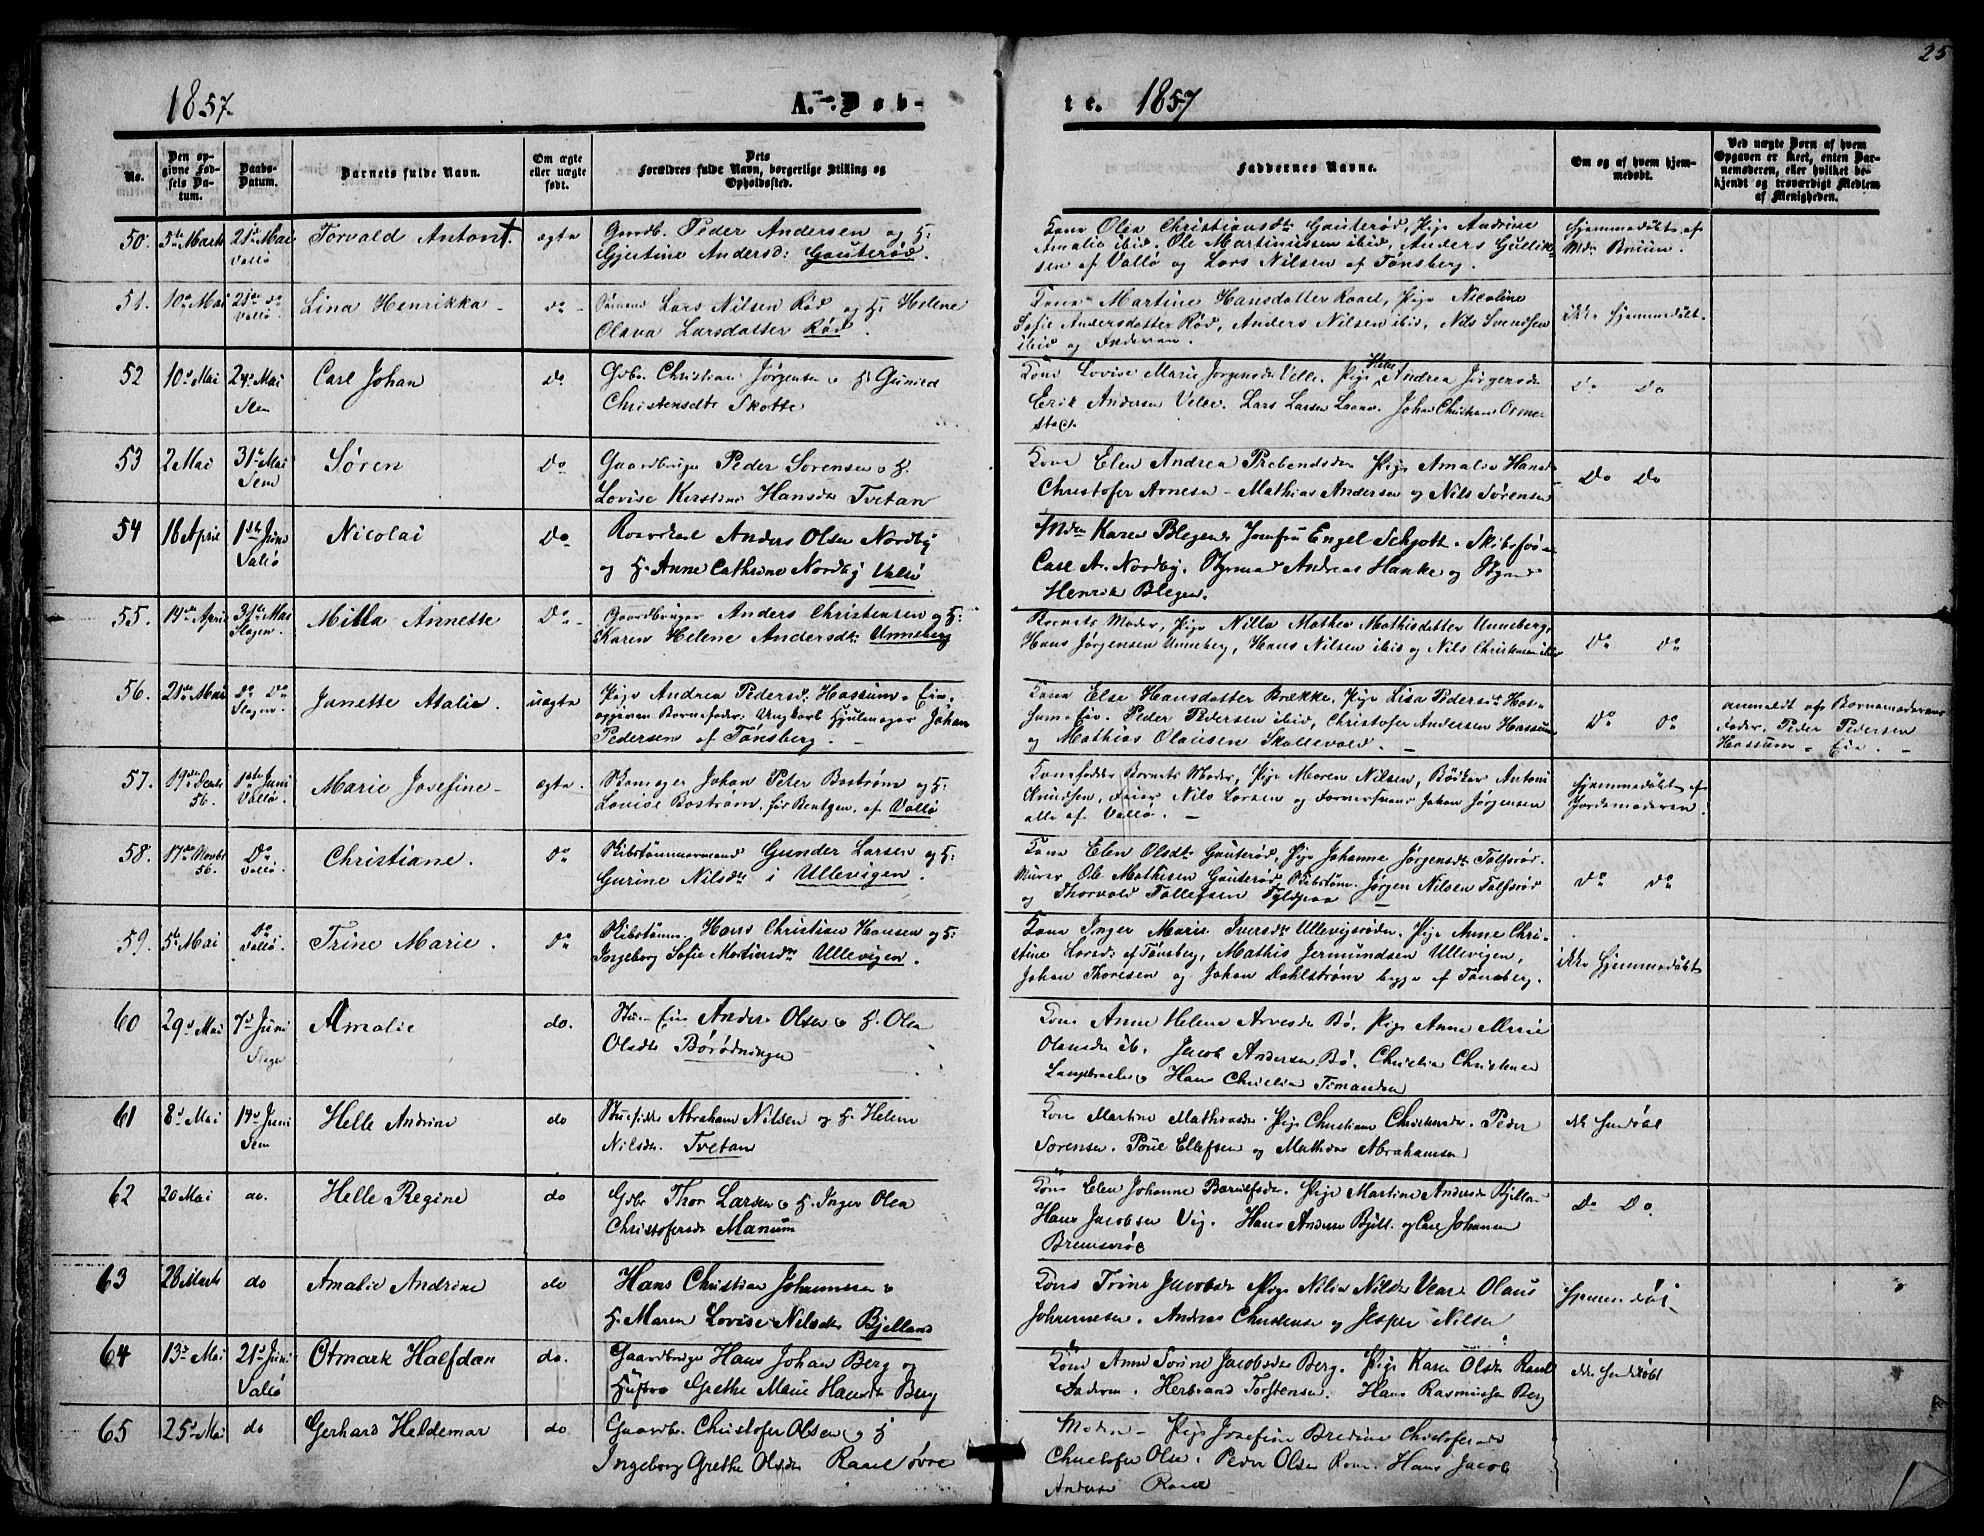 25
1857. A. Døb-
te. 1857
No.
Den opgivne Fødsels Datum.
Daabs-Datum.
Barnets fulde Navn.
Om ægte eller uægte født.
Dets Forældres fulde Navn, borgerlige Stilling og Opholdssted.
Faddernes Navne.
Om og af hvem hjemmedøbt.
Ved uægte Børn af hvem Opgaven er skeet, enten Barnemoderen, eller hvilket bekjendt og troværdigt Medlem af Menigheden.
50. 5te Marts 21de Mai Torvald Anton †. ægte Gaardb. Peder Andersen og H: Kone Olea Christiansdtr Gauterød, Pige Andrine Hjemmedøbt af
Vallø Gjertine Andersd: Gauterød. Amalie ibid. Ole Martiniussen ibid, Anders Gullik- Md. Bruun.
sen af Vallø og Lars Nilsen af Tønsberg.
51. 10de Mai 21de do Lina Henrikka - do - Lars Nilsen Rød og H: Helene Kone Martine Hansdatter Raael, Pige Nicoline ikke Hjemmedøbt.
Vallø Olava Larsdatter Rød. Sofie Andersdatter Rød, Anders Nilsen ibid, Nils Svendsen
ibid og Faderen.
52 10de Mai 24de Mai Carl Johan Do Gdbr. Christian Jørgensen og H. Gunild Kone Lovise Marie Jørgensdr Velle. Pige Helle Andrea Jørgensdr Do Do
Sem Christensdtr Skotte Erik Andersen Velle. Lars Larsen Johan Christian
53 2 Mai 31te Mai Søren Do Gaardbruger Peder Sørensen og H. Kone Elen Andrea Prebensdr Pige Amalie Hans Do Do
Sem Lovise Kirstine Hansdr Tvetan Christofer Arnesen - Mathias Andersen og Nils Sørensen
54 18 April 1ste Juni Nicolai Do Anders Olsen Nordby Mdm Karen Blegen, Jomfru Engel Schjøtt. Skibsfø-
Vallø og H. Anne Cathrine Nordby Vallø Carl A. Nordby. Styrmand Andreas Hanke og Styrmd
Henrik Blegen.
55. 14de April 31te Mai Milla Annette Do - Gaardbruger Anders Christensen og H: Barnets Moder, Pige Nilla Mathea Mathisdatter Unneberg, Do Do
Slagen. Karen Helene Andersdt: Unneberg Hans Jørgensen Unneberg, Hans Nilsen ibid og Nils Christensen ibid
56. 21de Mai Do Do Janette Atalie. uægte Pige Andrea Pedersd: Hassum-Eie. Kone Else Hansdatter Brække, Pige Lisa Pedersdtr Has- Do Do anmeldt af Barnemoderens
Slagen. opgiven Barnefader: Ungkarl Hjulmager Johan sum-Eie. Peder Pedersen ibid, Christofer Andersen Hassum Fader, Peder Pedersen
Pedersen af Tønsberg. - og Mathias Olausen Skallevold. - Hassum-Eie. -
57. 19de Decbr 56. 1ste Juni Marie Josefine - ægte. Skomager Johan Peter Bostrøm og H: Barnets Moder, Pige Maren Nilsen, Bødker Anton Hjemmedøbt af
Vallø. Lovise Bostrøm, før Bentzen, af Vallø Knudsen, Nils Larsen og Johan Jørgensen Jordemoderen.
alle af Vallø. -
58. 17de Novbr 56. Do Christiane. Do Skibstømmermand Gunder Larsen og H: Kone Elen Olsdt: Gauterød, Pige Johanne Jørgensdt: Tolfsrød. Do Do
Vallø Gurine Nilsdtr i Ullevigen. Murer Ole Mathisen Gauterød, Skibstøm. Jørgen Nilsen Tolfsrød
og Thorvald Tollefsen Fyldpaa
59. 5te Mai Do Trine Marie. Do Skibstømm. Hans Christian Hansen og H: Kone Inger Marie Iversdtr Ullevigrøden. Pige Anne Chri- ikke Hjemmedøbt
Vallø. Ingeborg Sofie Martinsdtr Ullevigen. stine Larsd: af Tønsberg, Mathis Jermundsen Ullevigen,
Johan Thoresen og Johan Dahlstrøm begge af Tønsberg.
60 29de Mai 7de Juni Amalie do. Anders Olsen og H. Olea Kone Anne Helene Arvesdr Bø. Pige Anne Marie
Slagen Olsdtr Borødningen Olsensdr ib. Jacob Andersen Bø. Christian Christensen
og Hans Christian
61 8de Mai 14de Juni Helle Andrine do Abraham Nilsen og H. Helene Kone Martine Mathiasdr. Pige Christiane Christensdr. Peder
Sem Nilsdr. Tvetan Sørensen. Poul Ellefsen og Mathias Abrahamsen
62 20 Mai do. Helle Regine do Gdbr Thor Larsen og H. Inger Olea Kone Elen Johanne Pige Martine Andersdr Bjelland Do Do.
Christofersdr Manum Hans Jacobsen Vig. Hans Andersen og Carl Johansen
Bremserød
63 28 Marts do Amalie Andrine do Hans Christian Johannessen og Kone Trine Jacobsdr Pige Nilia Nilsdr Vear Olaus Hjemmedøbt
H. Maren Lovise Nilsdtr Bjelland Johannesen. Andreas Christensen og Jesper Nilsen
64 13de Mai 21de Juni Otmark Halfdan do. Gaardbruger Hans Johan Berg og Kone Anne Sorine Jacobsdtr Berg. Pige Karen Olsdtr Raael
Vallø Hustro Grethe Marie Hansdtr Berg Faderen. Herbrand Torstensen. Hans Rasmussen Berg
65 25de Mai do Gerhard Heldemar do Gaardbr. Christofer Olsen og H Moder - Pige Josefine Bredine Christofersdr
Ingeborg Grethe Olsdtr Raael øvre Christofer Olsen. Peder Olsen Hans Jacob
Andersen Raael